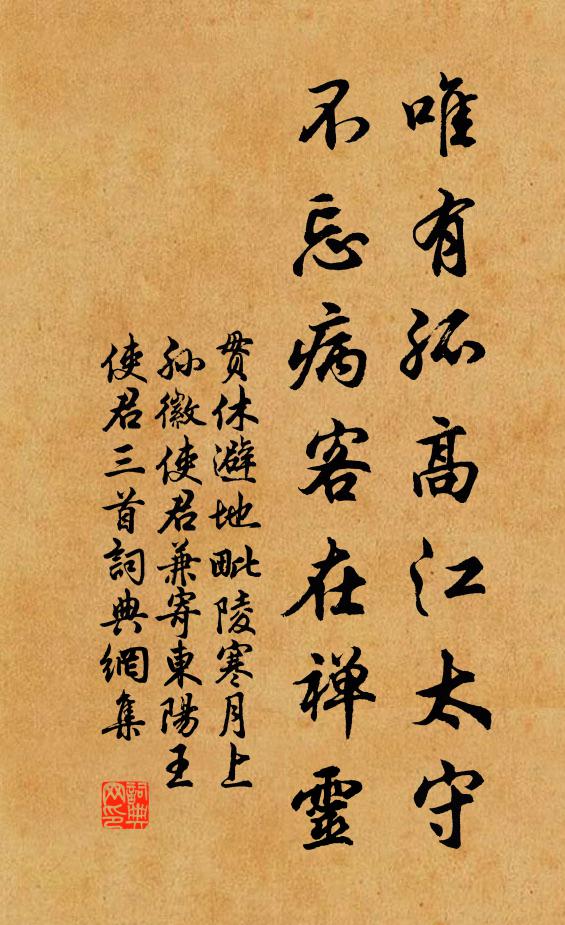 唯有孤高江太守
不忘病客在禅靈
贯休避地毗陵寒月上
孙徽使君兼寄東陽王
使君三首詞典網集
詞典网印